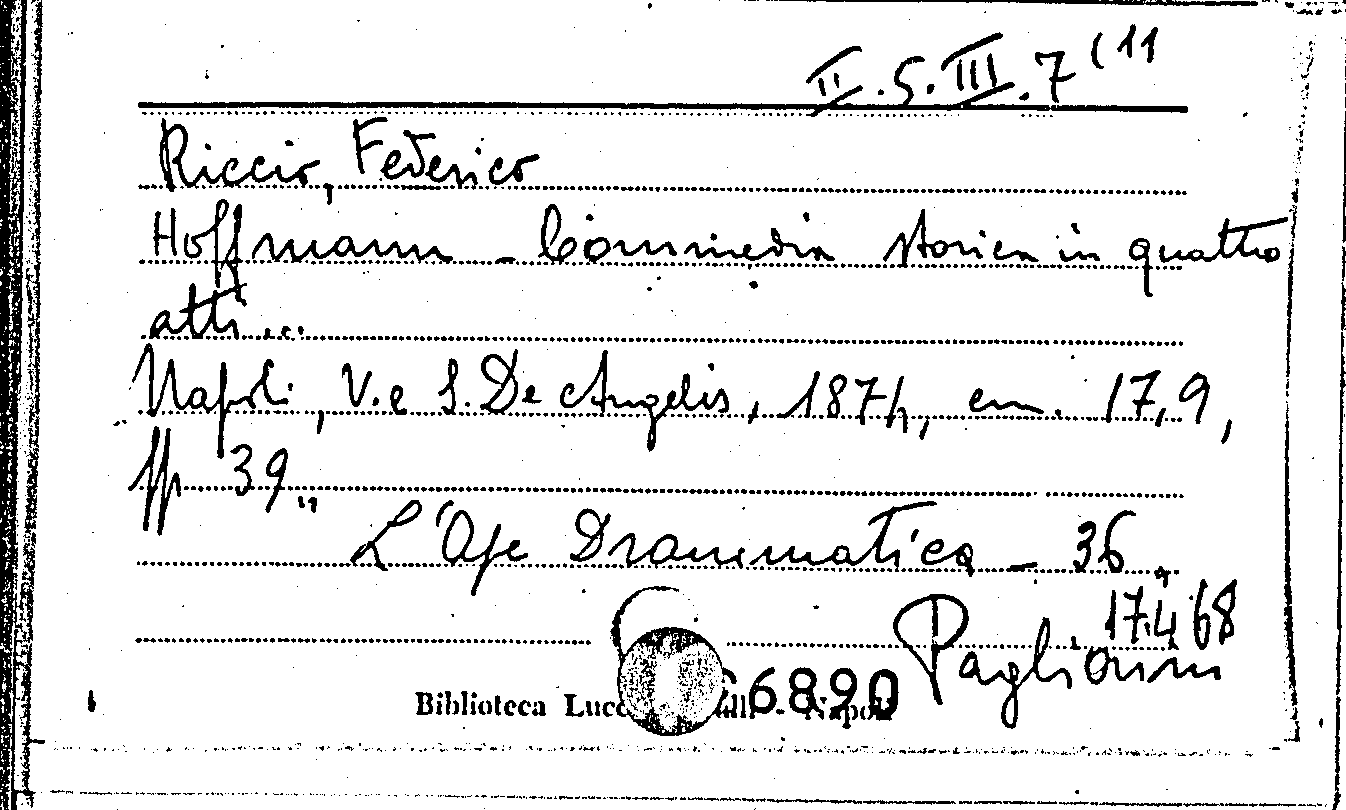 II.5.III.7 (11
Riccio, Federico
Hoffmann - Commedia storica in quattro
atti...
Napoli, V. e S. De Angelis, 1874, cm. 17,9,
pp 39..
L'Ape Drammatica - 36
17.4.68
Biblioteca 6890 Napoli